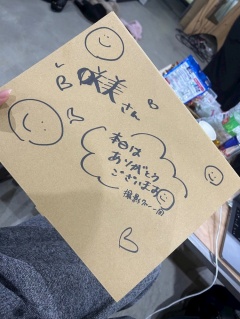 咲美さん
本日は
ありがとう
ございます
撮影クルー一同